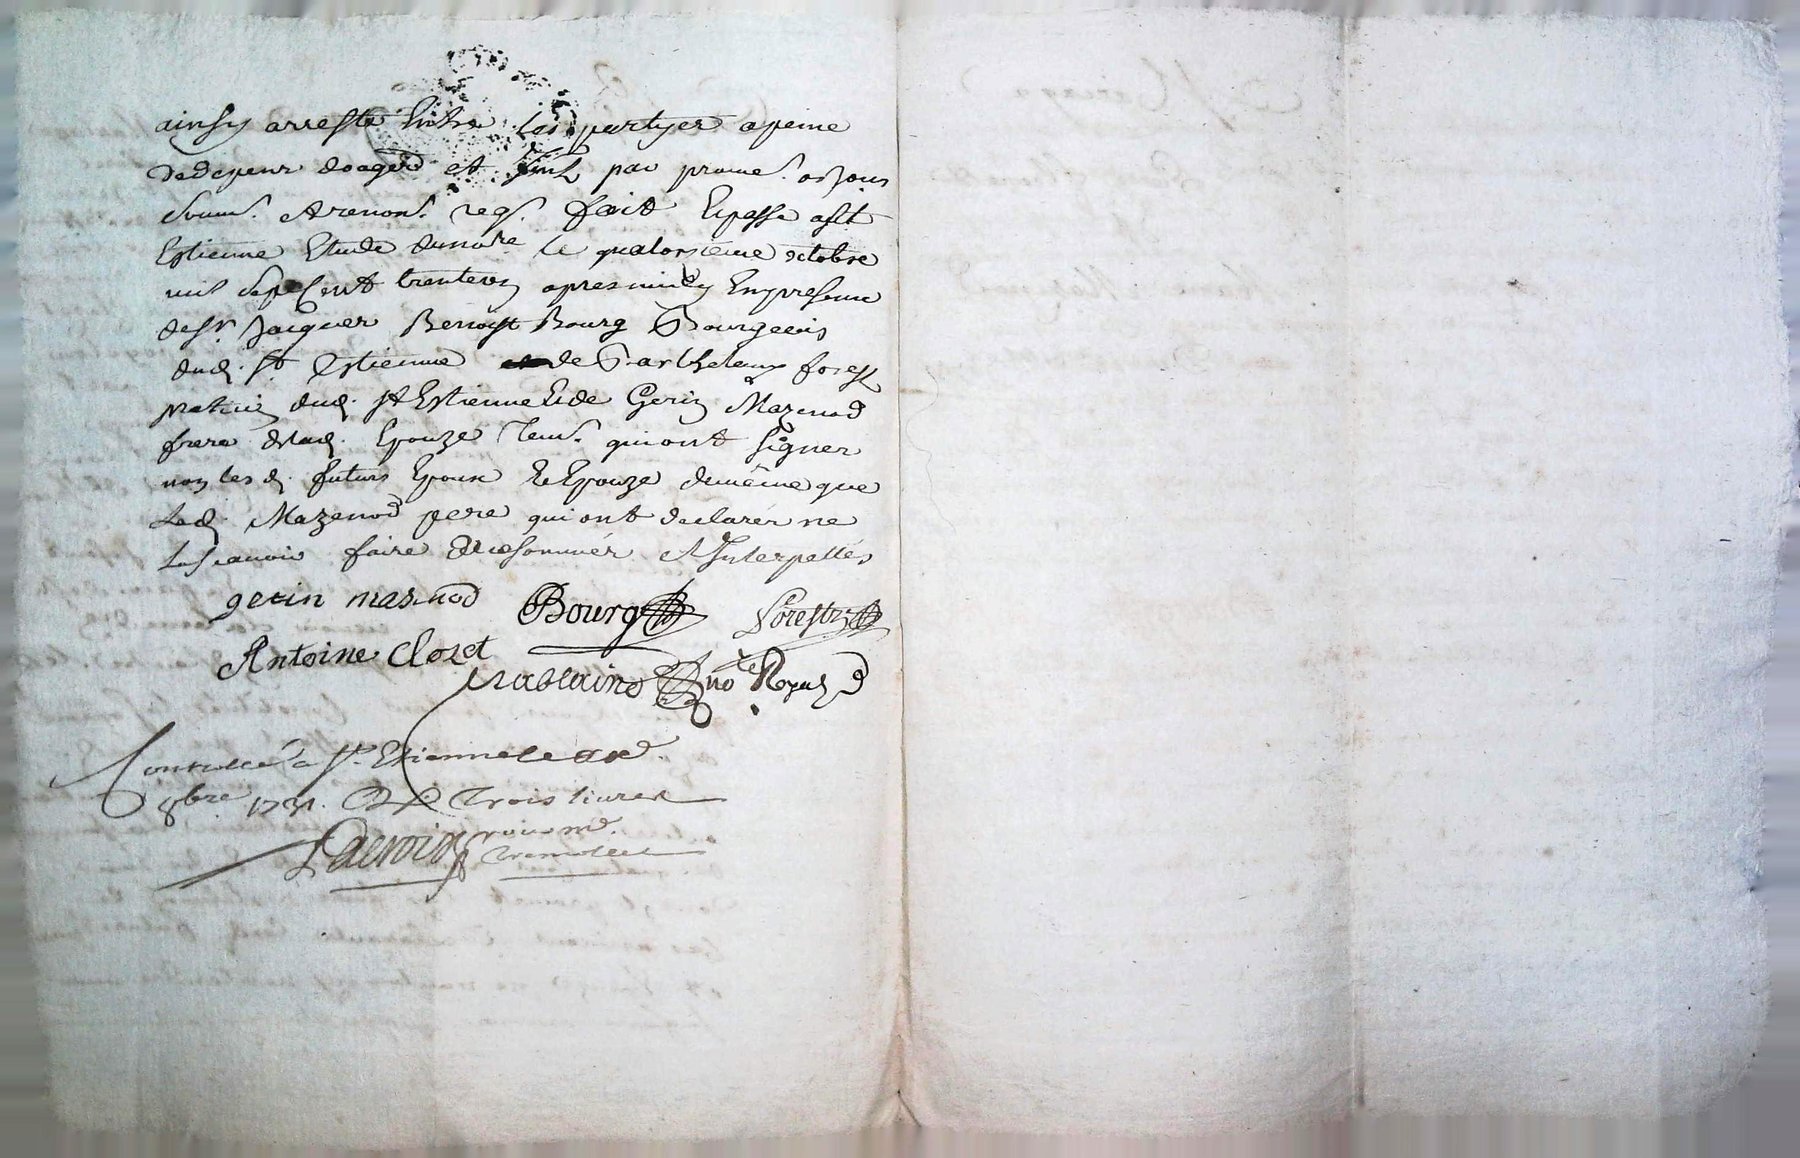 ainsy arresté Entre les partyes a peine
de depens domages et Jnt par prome. 
soum. et renon. req. fait Epassé a St
Estienne Etude dunore le quatorsieme octobre
mil sept Cent trente apresmidy En presence
de Sr Jacques Benoist Bourg Bourgeois
dud. St Estienne de Barthelemy forest
praticien dud. St Estienne Et de Gerin Mazenod
frere de lad. Epouze temo. qui ont signer
non les d. futurs Epoux Et Epouze de même que
led. Mazenod pere qui ont declarer ne
le scavoir faire de ce sommér et Interpellés
gerin masnod Bourg forest
Antoine Clozet
no Royal
Controllé a St. Estienne le
8bre 173 . Trois livres
Lacroix